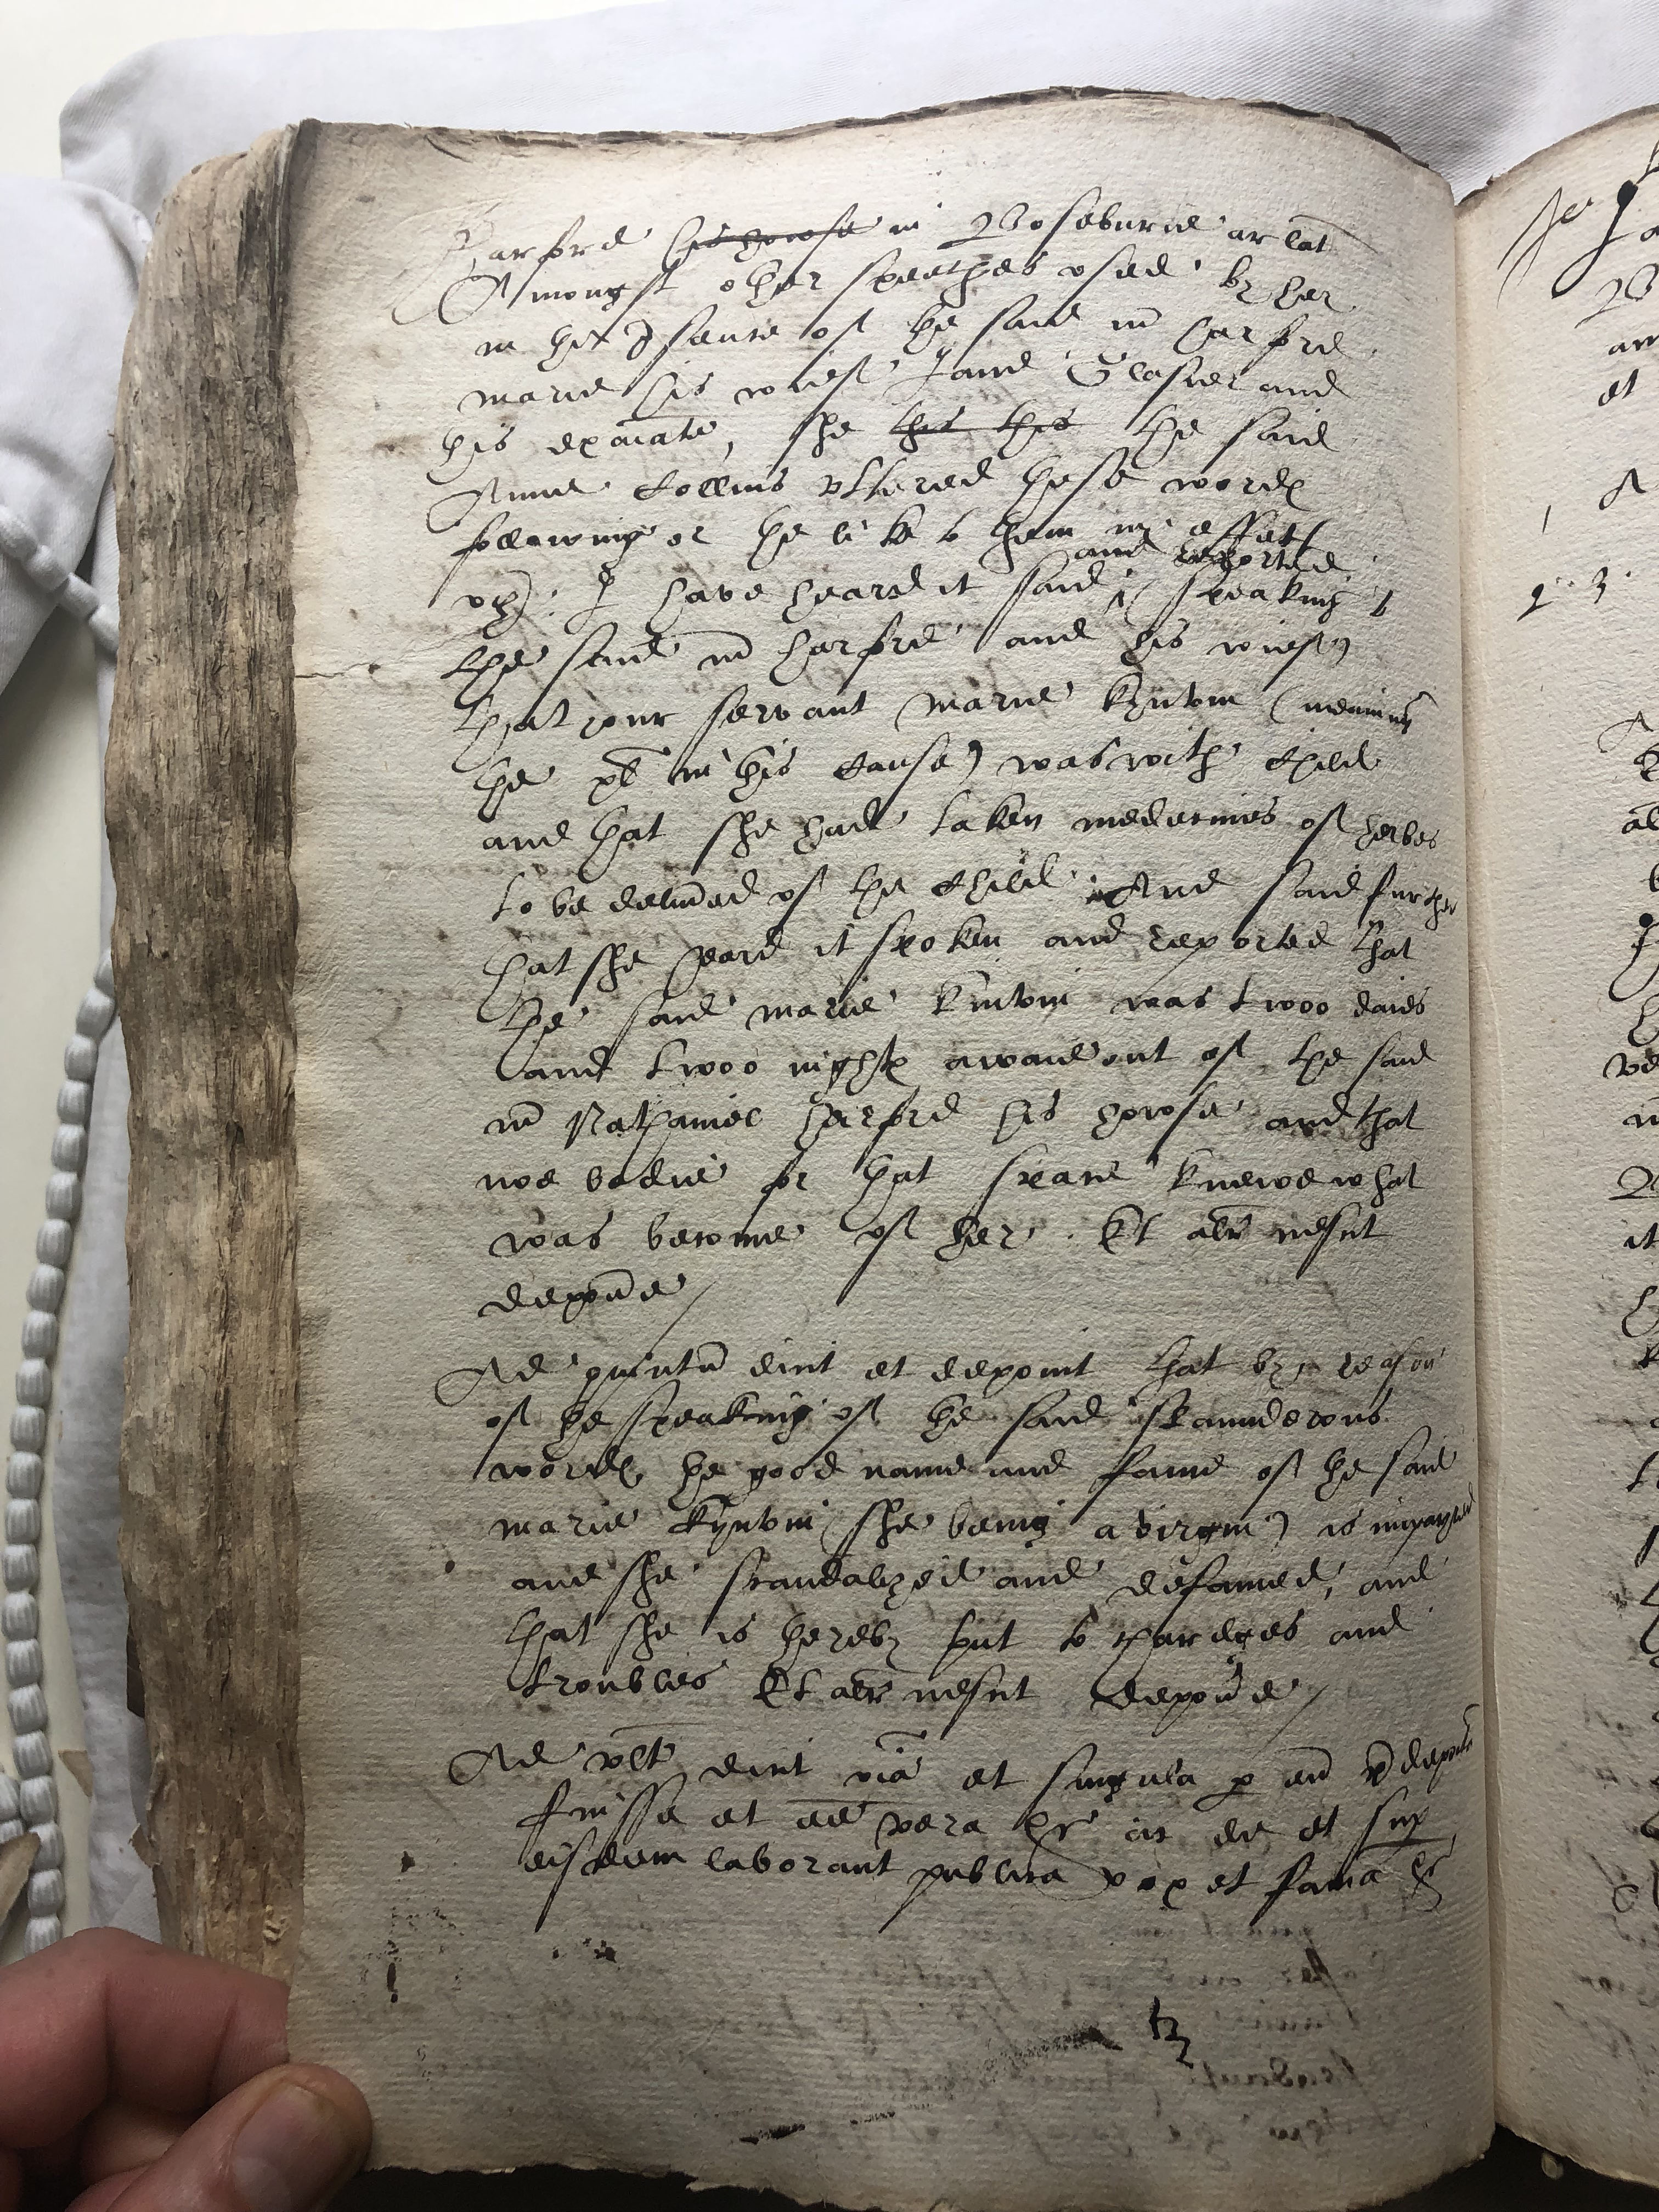 Harford his howse in Bosburie arlat
Amongst other speeches used by her
in the psence of the said mr Harford
Marie his wief Jane Glasier and
this exaiate, she this this the said
Anne Collins uttered these words
following or the like to them in effect
vizt: I have heard it said and reported (speaking to
the said mr Harford and his wief)
that your servant Marie Kynvin (meaning
the pt in this cause) was with child
and that she had taken medecines of herbes
to be deliued of the child. And said further
that she heard it spoken and reported that
the said Marie Kinvin was twoo daies
and twoo nights awaie out of the said
mr Nathaniel Harford his howse and that
noe bodie for that space knewe what
was become of her. Et alr nescit
depoñe
Ad quintū dicit et deponit that by reason
of the speaking of the said slaunderous
words the good name and fame of the said
Marie Kynvin (she being a virgin) is impayred
and she scandalyzed and defamed, and
that she is hereby put to chardges and
troubles Et alr nescit depoñe
Ad ult dicit oīa et singula p eū pdeposita
fuisse et eē vera &c ac de et sup
eisdem laborant publica vox et fama &c